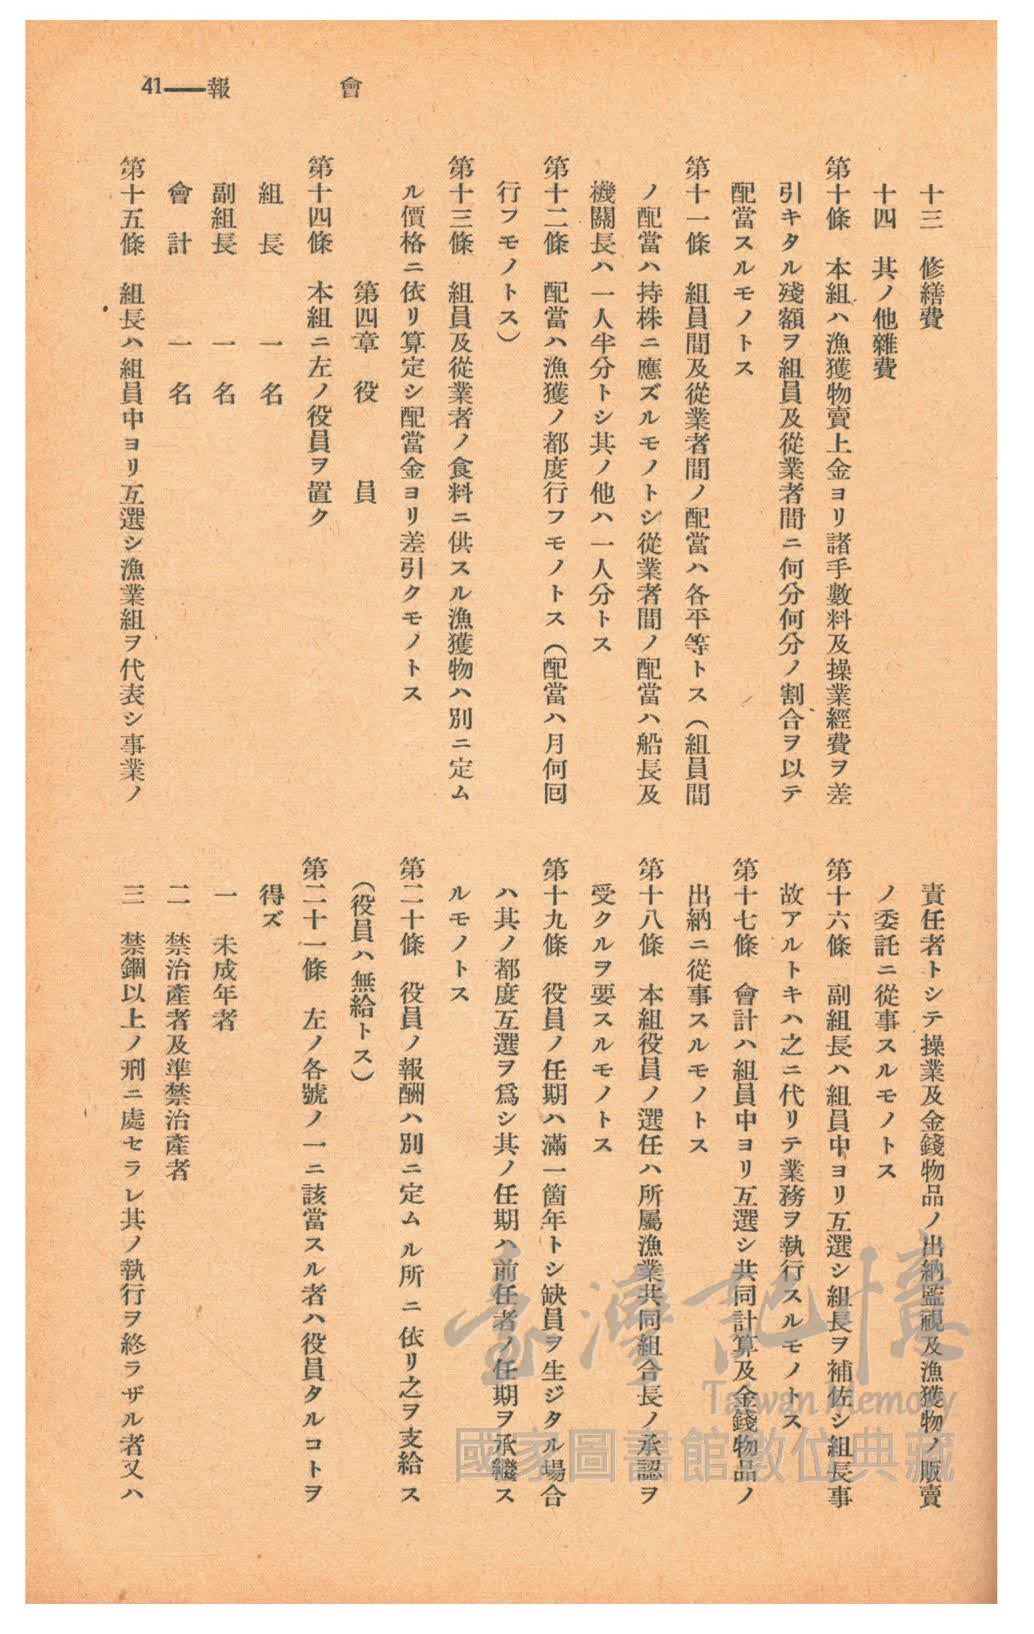 41——報　會
十三　修繕費
十四　其ノ他雜費
第十條　本組ハ漁獲物賣上金ヨリ諸手數料及操業經費ヲ差
引キタル殘額ヲ組員及從業者間ニ何分何分ノ割合ヲ以テ
配當スルモノトス
第十一條　組員間及從業者間ノ配當ハ各平等トス（組員間
ノ配當ハ持株ニ應ズルモノトシ從業者間ノ配當ハ船長及
機關長ハ一人半分トシ其ノ他ハ一人分トス
第十二條　配當ハ漁獲ノ都度行フモノトス（配當ハ月何回
行フモノトス）
第十三條　組員及從業者ノ食料ニ供スル漁獲物ハ別ニ定ム
ル價格ニ依リ算定シ配當金ヨリ差引クモノトス
第四章　役　員
第十四條　本組ニ左ノ役員ヲ置ク
組　長　一　名
副組長　一　名
會　計　一　名
第十五條　組長ハ組員中ヨリ互選シ漁業組ヲ代表シ事業ノ
責任者トシテ操業及金錢物品ノ出納監視及漁獲物ノ販賣
ノ委託ニ從事スルモノトス
第十六條　副組長ハ組員中ヨリ互選シ組長ヲ補佐シ組長事
故アルトキハ之ニ代リテ業務ヲ執行スルモノトス
第十七條　會計ハ組員中ヨリ互選シ共同計算及金錢物品ノ
出納ニ從事スルモノトス
第十八條　本組役員ノ選任ハ所屬漁業共同組合長ノ承認ヲ
受クルヲ要スルモノトス
第十九條　役員ノ任期ハ滿一箇年トシ缺員ヲ生ジタル場合
ハ其ノ都度互選ヲ爲シ其ノ任期ハ前任者ノ任期ヲ承繼ス
ルモノトス
第二十條　役員ノ報酬ハ別ニ定ムル所ニ依リ之ヲ支給ス
（役員ハ無給トス）
第二十一條　左ノ各號ノ一ニ該當スル者ハ役員タルコトヲ
得ズ
一　未成年者
二　禁治產者及準禁治產者
三　禁錮以上ノ刑ニ處セラレ其ノ執行ヲ終ラザル者又ハ
臺灣記憶
Taiwan Memory
國家圖書館數位典藏